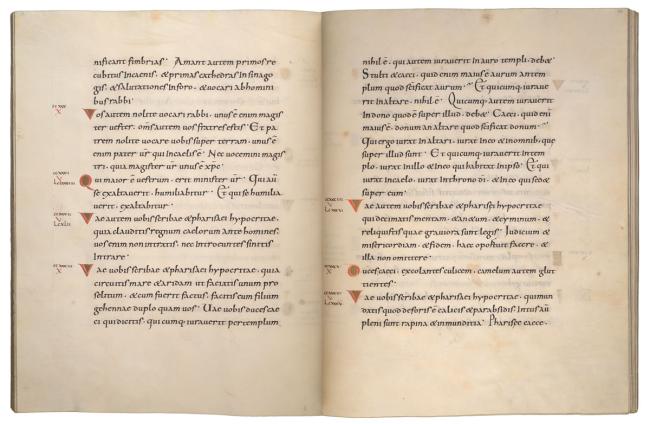 nificant fimbrias. Amant autem primos re
cubitus incaenis, & primas cathedras insinago
gis, & salutationes inforo, & vocari abhomini
bus rabbi.
Vos autem nolite vocari rabbi, unus ē enim magis
ter vester, oms autem vos fratres estis. Et pa
trem nolite vocare vobis super terram, unus ē
enim pater vr qui incaelis ē. Nec vocemini magis
tri, quia magister vr unus ē xpc.
Qui maior ē vestrum, erit minister vr. Qui aū
se exaltaverit, humiliabitur. Et qui se humilia
verit, exaltabitur.
Vae autem vobis scribae & pharisaei hypocritae,
quia clauditis regnum caelorum ante homines,
vos enim non intratis, nec introeuntes sinitis
intrare.
Vae vobis scribae & pharisaei hypocritae, quia
circuitis mare & aridam ut faciatis unum pro
selitum, & cum fuerit factus, facitis eum filium
gehennae duplo quam vos. Vae vobis duces cae
ci qui dicitis, quicumq; iuraverit per templum
nihil ē, qui autem iuraverit in auro templi, deb&.
Stulti & caeci, quid enim maius ē aurum an tem
plum quod scificat aurum. Et quicumq; iurave
rit in altare, nihil ē. Quicumq; autem iuraverit
in dono quod ē super illud, deb&. Caeci, quid eni
maius ē, donum an altare quod scificat donum.
Qui ergo iurat in altari, iurat in eo & in omnib; que
super illud sunt. Et qui cumq; iuraverit in tem
plo, iurat in illo & in eo qui habitat in ipso. Et qui
iurat in caelo, iurat in throno dī, & in eo qui sed&
super eum.
Vae autem vobis scribae & pharisaei hypocritae
qui decimatis mentam, & an&um, & cyminum, &
reliquistis quae graviora sunt legis. Iudicium &
misericordiam, & fidem. haec oportuit facere, &
illa non omittere.
Duces caeci, excolantes culicem, camelum autem glut
tientes.
Vae vobis scribae & pharisaei hypocritae, qui mun
datis quod deforis ē calicis & parabsidis. Intus aū
pleni sunt rapina & inmunditia. Pharisee caece,